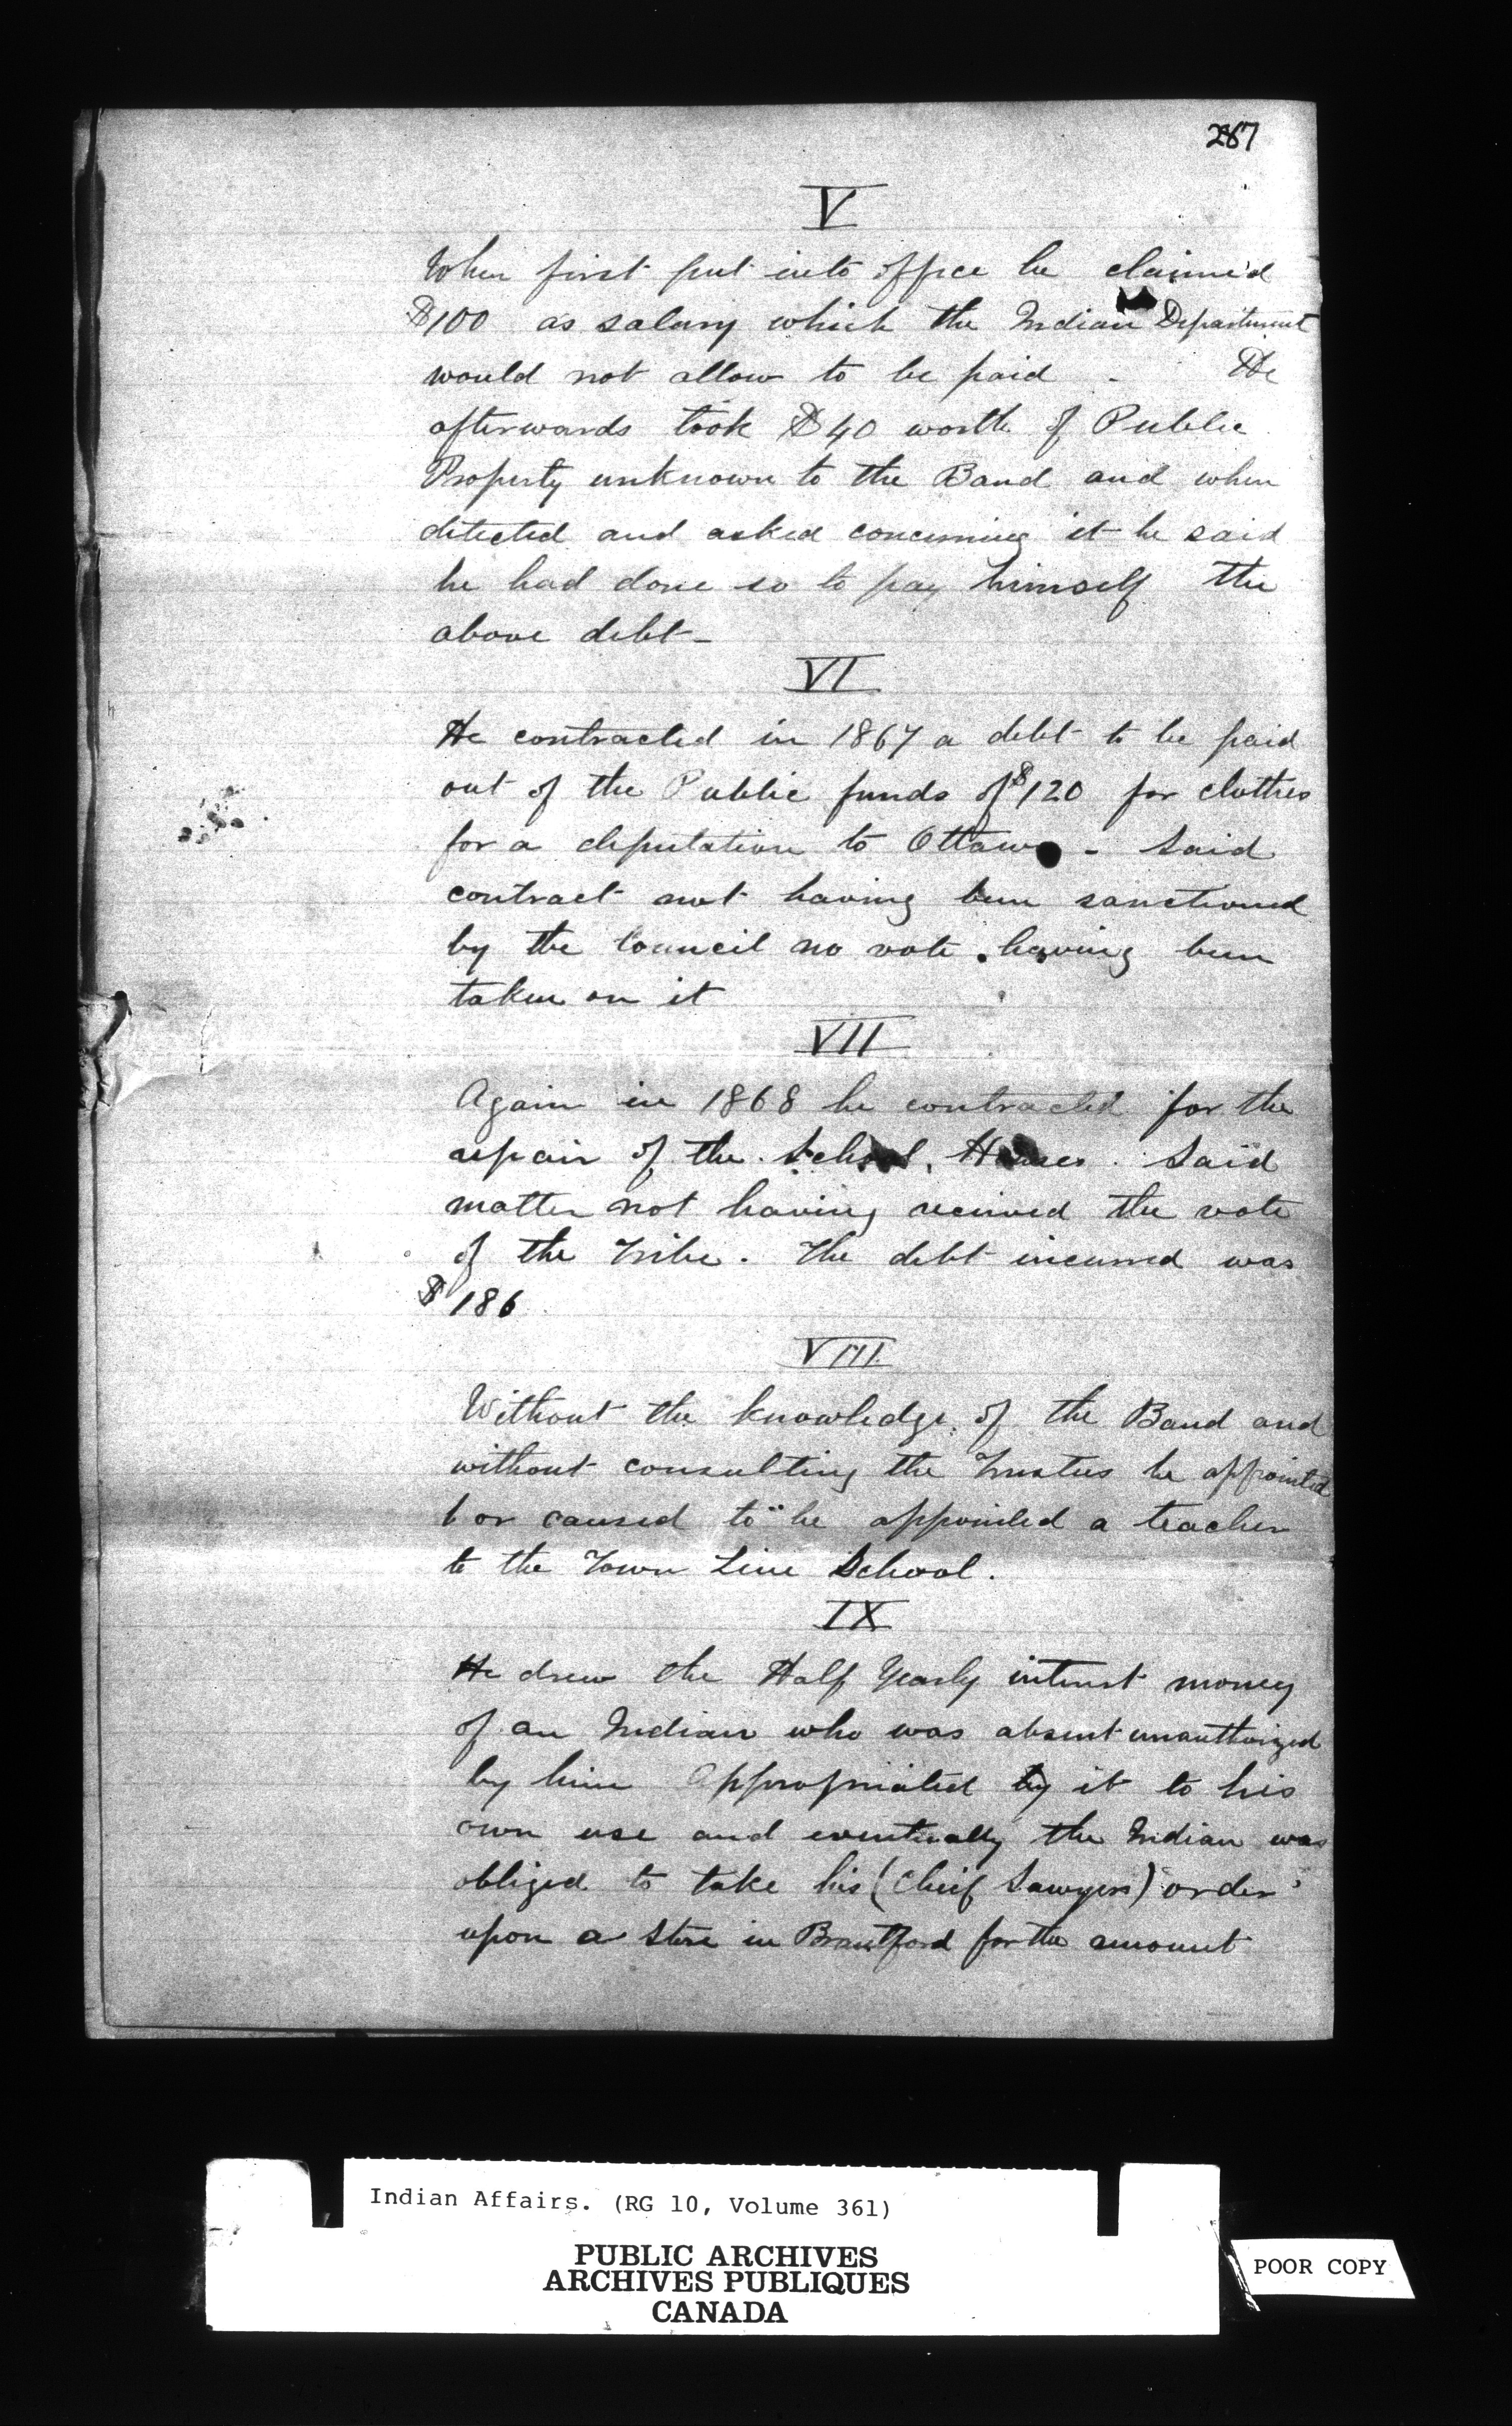 287
V
When first put into office he claimed
$100 as salary which the Indian Department
would not allow to be paid - He
afterwards took $40 worth of Public
Property unknown to the Band and when
detected and asked concerning it he said
he had done so to pay himself the
above debt -
VI
He contracted in 1867 a debt to be paid
out of the Public funds of $120 for clothes
for a deputation to Ottawa - Said
contract not having been sanctioned
by the Council no vote having been
taken on it
VII
Again in 1868 he contracted for the
repair of the School Houses. Said
matter not having received the vote
of the Tribe. The debt incurred was
$186
VIII
Without the knowledge of the Band and
without consulting the Trustees he appointed
or caused to be appointed a teacher
to the Town Line School.
IX
He drew the Half Yearly interest money
of an Indian who was absent unauthorized
by him appropriated by it to his
own use and eventually the Indian was
obliged to take his (Chief Sawyers) order
upon a Store in Brantford for the amount
Indian Affairs. (RG 10, Volume 361)
PUBLIC ARCHIVES
ARCHIVES PUBLIQUES
CANADA
POOR COPY